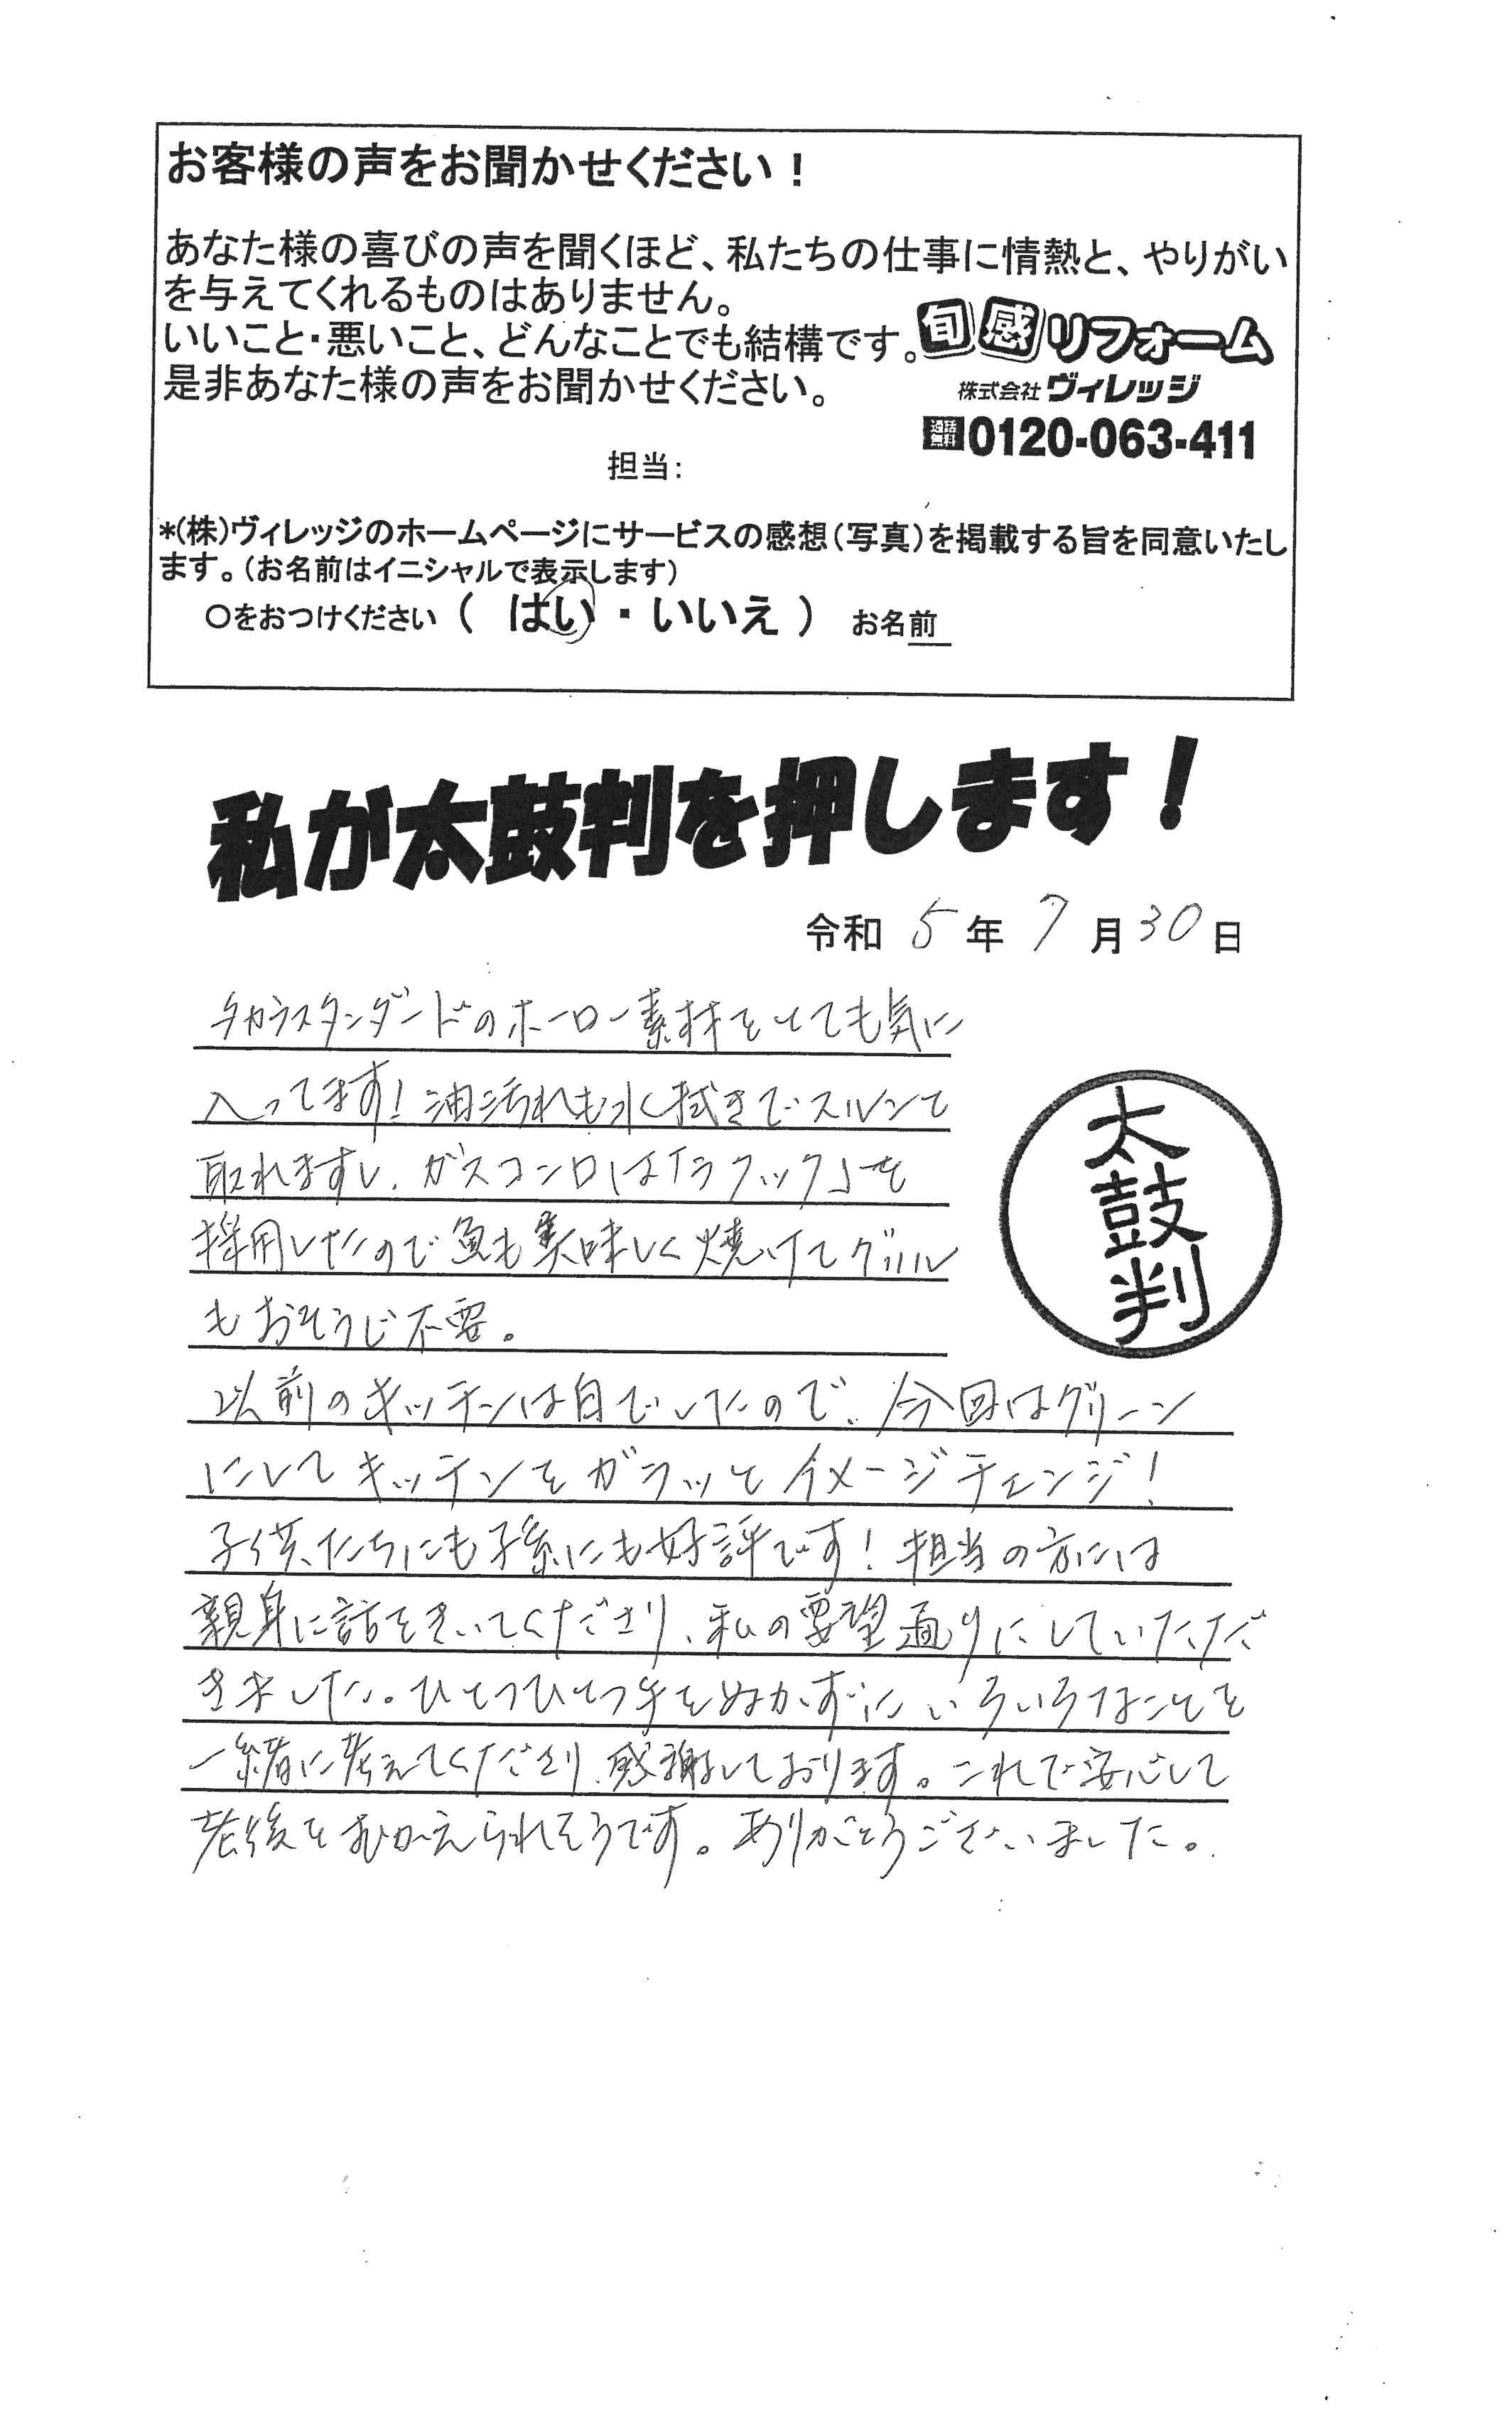 お客様の声をお聞かせください！
あなた様の喜びの声を聞くほど、私たちの仕事に情熱と、やりがい
を与えてくれるものはありません。
いいこと・悪いこと、どんなことでも結構です。
是非あなた様の声をお聞かせください。
旬感リフォーム
株式会社ヴィレッジ
通話無料0120-063-411
担当：
*(株)ヴィレッジのホームページにサービスの感想(写真)を掲載する旨を同意いたし
ます。(お名前はイニシャルで表示します)
○をおつけください（ はい ・ いいえ ） お名前
私が太鼓判を押します！
令和 5 年 7 月 30 日
タカラスタンダードのホーロー素材をとても気に
入ってます！油汚れも水拭きでスルンと
取れますし、ガスコンロは「ラクック」を
採用したので魚も美味しく焼けてグリル
もおそうじ不要。
太鼓判
以前のキッチンは白でしたので、今回はグリーン
にしてキッチンをガラッとイメージチェンジ！
子供たちにも孫にも好評です！担当の方には
親身に話をきいてくださり、私の要望通りにしていただ
きました。ひとつひとつ手をぬかずにいろいろなことを
一緒に考えてくださり、感謝しております。これで安心して
老後をむかえられそうです。ありがとうございました。